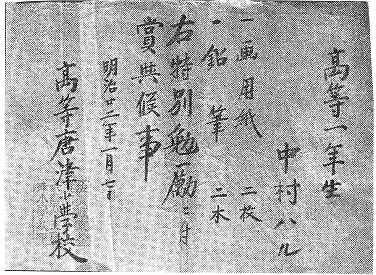 高等一年生
中村ハル
一画用紙 二枚
一鉛筆 二本
右特別勉励ニ付
賞与候事
明治廿二年一月七日
高等唐津小学校